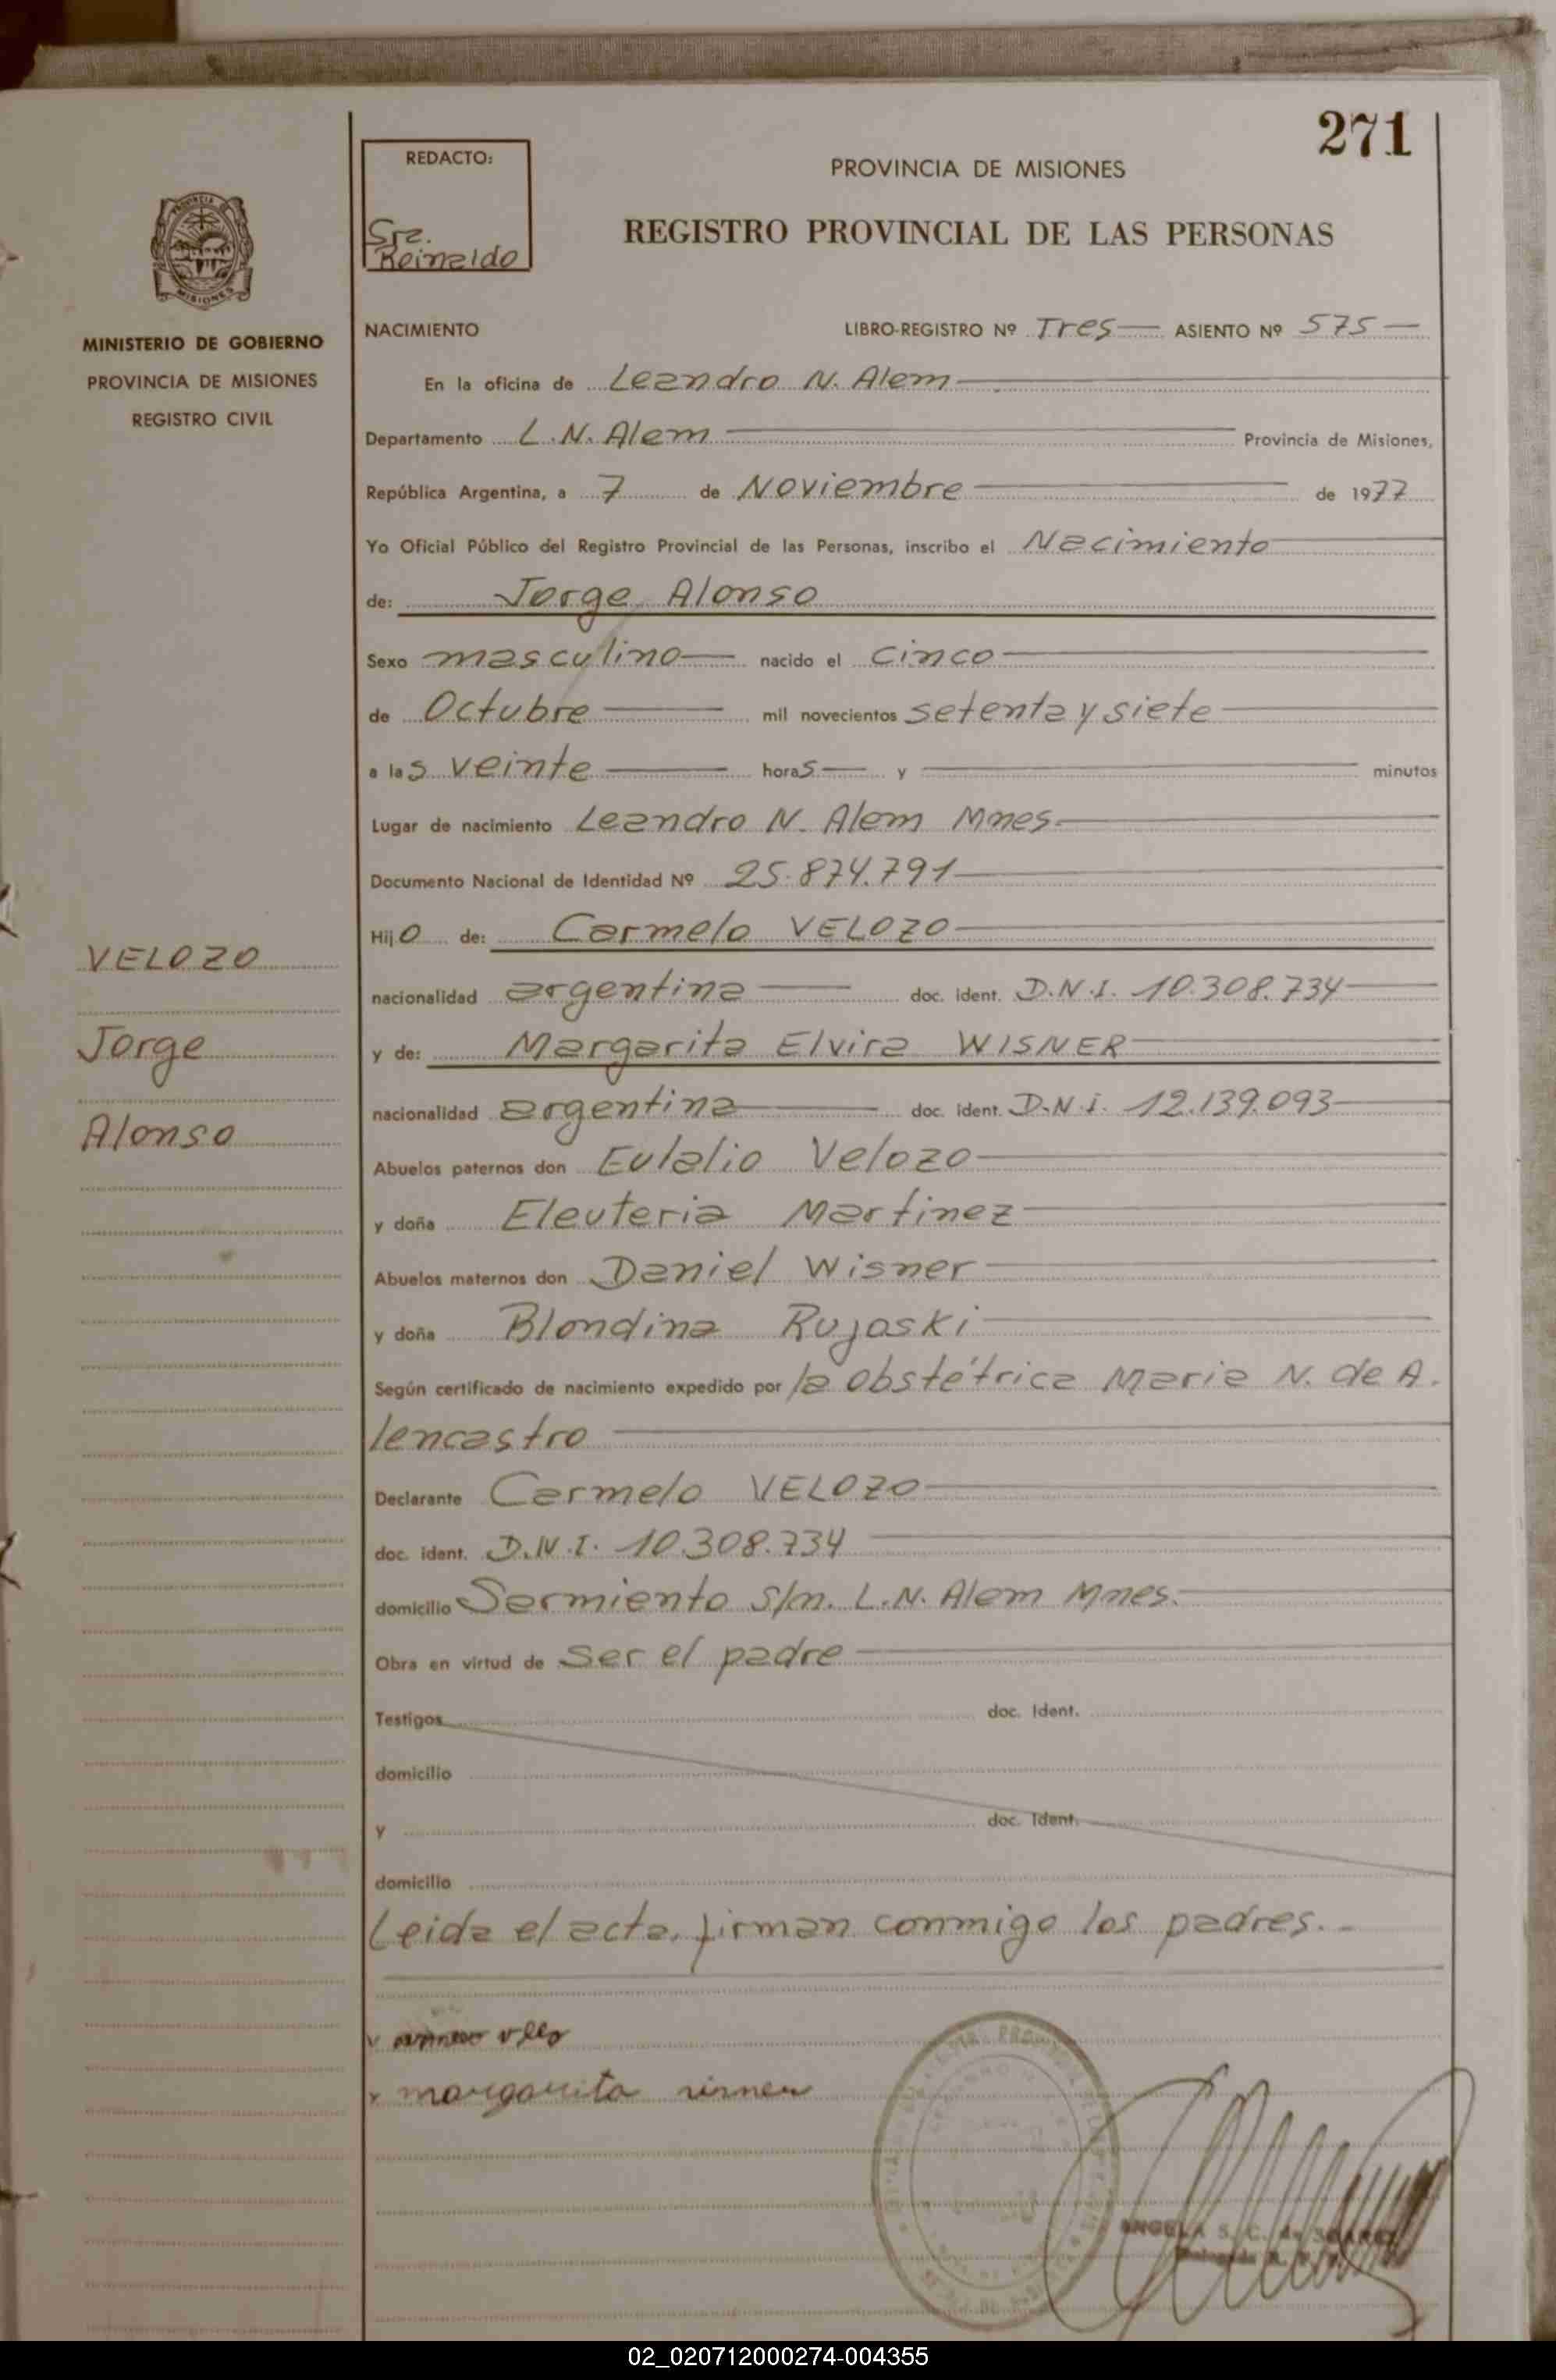 271
REDACTO:
Sra.
Reinaldo
PROVINCIA DE MISIONES
REGISTRO PROVINCIAL DE LAS PERSONAS
MISIONES
MINISTERIO DE GOBIERNO
PROVINCIA DE MISIONES
REGISTRO CIVIL
NACIMIENTO LIBRO-REGISTRO Nº Tres ASIENTO Nº 575
En la oficina de Leandro N. Alem
Departamento L.N. Alem Provincia de Misiones,
República Argentina, a 7 de Noviembre de 1977
Yo Oficial Público del Registro Provincial de las Personas, inscribo el Nacimiento
de: Jorge Alonso
Sexo masculino nacido el cinco
de Octubre mil novecientos setenta y siete
a las veinte horas y minutos
Lugar de nacimiento Leandro N. Alem Mnes.
Documento Nacional de Identidad Nº 25.874.791
Hijo de: Carmelo VELOZO
nacionalidad argentina doc. ident. D.N.I. 10.308.734
y de: Margarita Elvira WISNER
nacionalidad argentina doc. ident. D.N.i. 12.139.093
Abuelos paternos don Eulalio Velozo
y doña Eleuteria Martinez
Abuelos maternos don Daniel Wisner
y doña Blondina Rujoski
Según certificado de nacimiento expedido por la obstétrica Maria N. de A.
lencastro
Declarante Carmelo VELOZO
doc. ident. D.N.I. 10.308.734
domicilio Sarmiento S/n. L.N. Alem Mnes.
Obra en virtud de ser el padre
Testigos doc. Ident.
domicilio
y doc. Ident.
domicilio
Leida el acta, firman conmigo los padres.-
VELOZO
Jorge
Alonso
margarita
ANGELA S. C. de
02_020712000274-004355